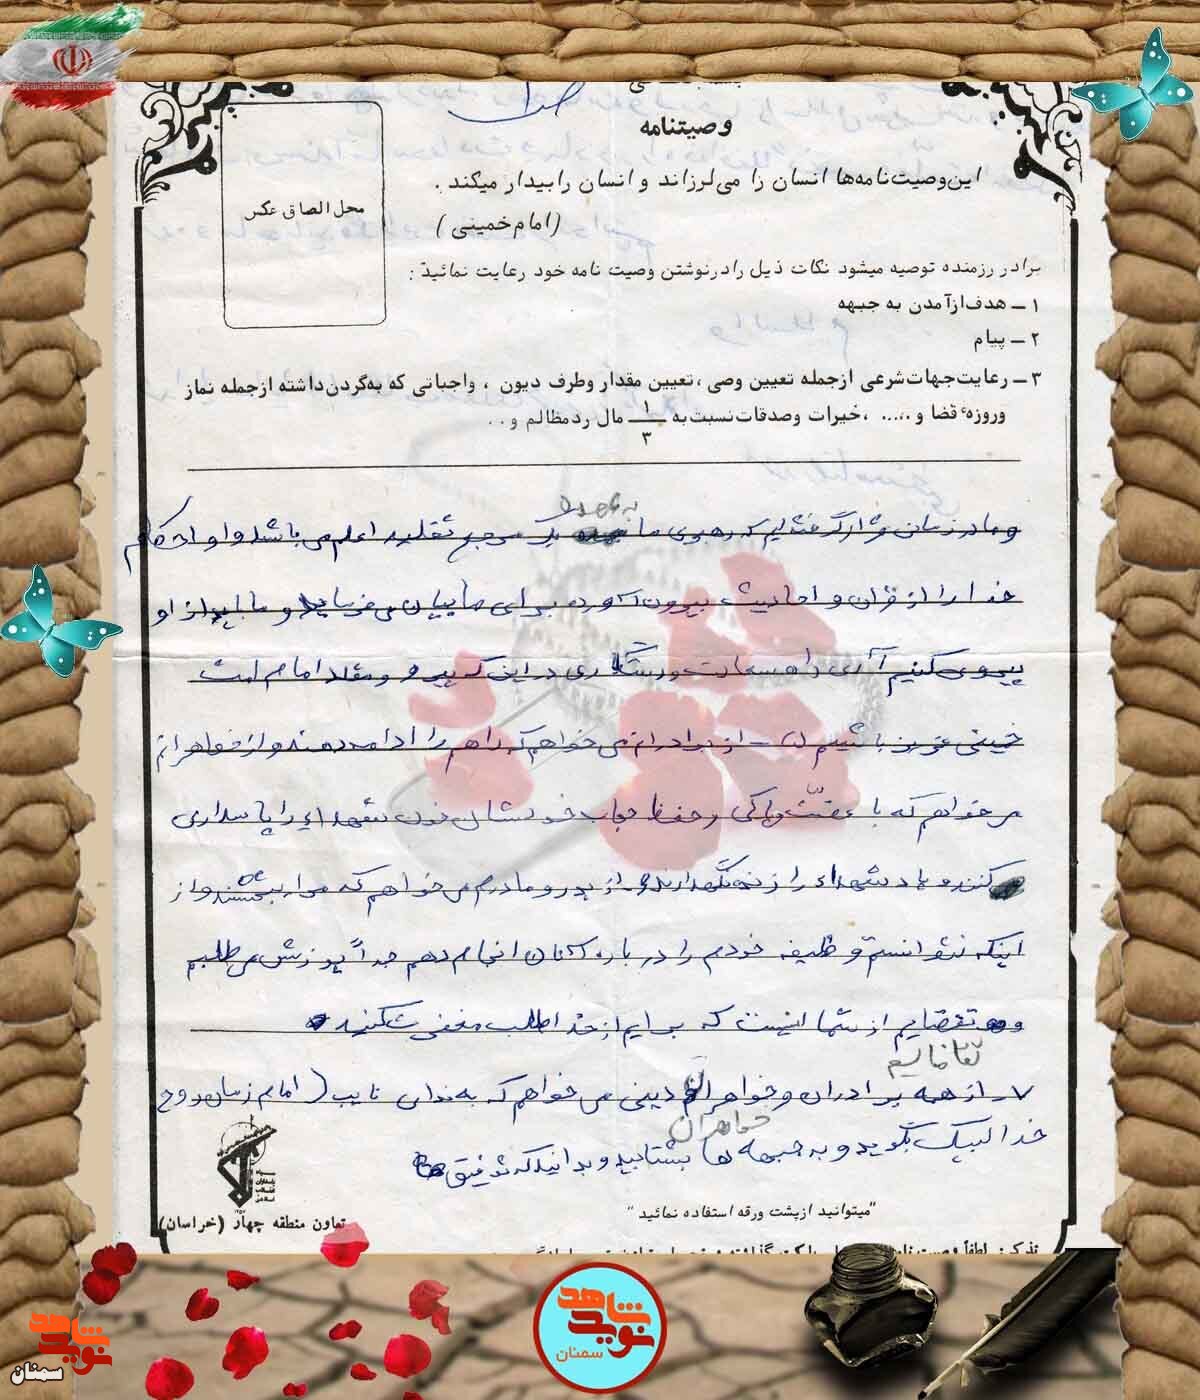 وصیتنامه
این وصیت‌نامه‌ها انسان را می‌لرزاند و انسان را بیدار میکند .
(امام خمینی)
محل الصاق عکس
برادر رزمنده توصیه میشود نکات ذیل را درنوشتن وصیت نامه خود رعایت نمائید :
۱ ــ هدف ازآمدن به جبهه
۲ ــ پیام
۳ ــ رعایت جهات شرعی ازجمله تعیین وصی ، تعیین مقدار وطرف دیون ، واجباتی که به‌گردن داشته ازجمله نماز
وروزهٔ قضا و ..... ، خیرات وصدقات نسبت به ۱/۳ مال رد مظالم و ..
و ما در زمان قرار گرفته‌ایم که رهبری ما به عهده یک مرجع تقلید اعلم می باشد و او احکام
خدا را از قرآن و احادیث بیرون آورده برای ما بیان می فرماید و ما باید از او
پیروی کنیم آری راه سعادت و رستگاری در این که پیرو و مقلد امام امت
خمینی عزیز باشیم - از برادرانم می خواهم که راهم را ادامه دهند و از خواهرانم
می خواهم که با عفت و پاکی و حفظ حجاب خودشان خون شهداء را پاسداری
کنند و یاد شهداء را زنده نگهدارند و از پدر و مادرم می خواهم که مرا ببخشند و از
اینکه نتوانستم وظیفه خودم را درباره آنان انجام دهم جداً پوزش می طلبم
و تقضایم از شما اینست که برایم از خدا طلب مغفرت کنید
تقاضایم
۷- از همه برادران و خواهران دینی می خواهم که به ندای نایب امام زمان روح
خواهران
خدا لبیک بگویید و به جبهه ها بشتابید و بدانید که توفیق
سپاه پاسداران انقلاب اسلامی
"میتوانید ازپشت ورقه استفاده نمائید"
تعاون منطقه چهار (خراسان)
نوید شاهد
سمنان
نوید شاهد
سمنان